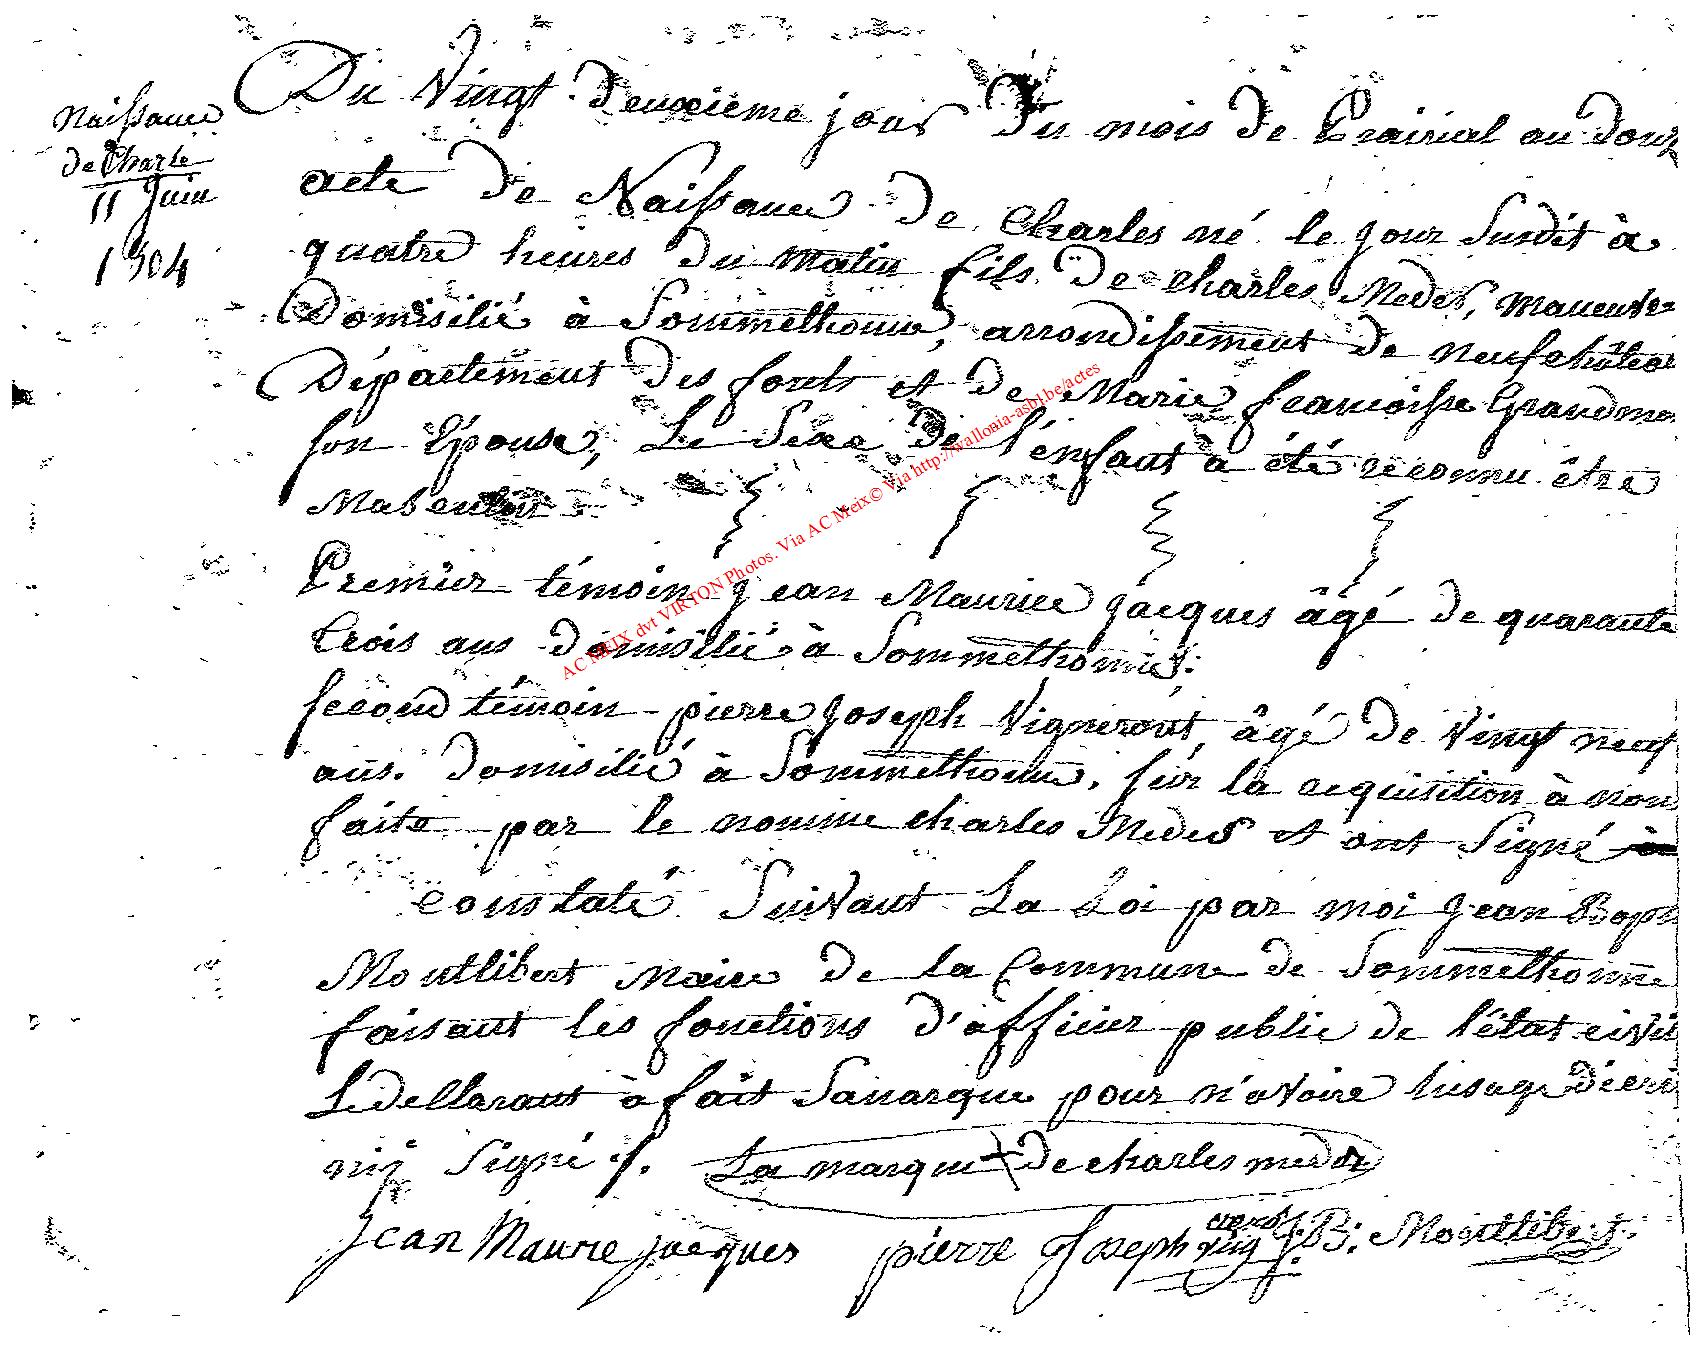 Naissance
de Charle
11 Juin
1804
Du Vingt deuxieme jour Du mois de Prairial an douz
acte de Naissance de Charles né le jour Susdit à
quatre heures du matin fils de charles Medes, maneuvre
Domisilié à Sommethonne, arrondissement de neufchâteau
Département des forets et de Marie francoisse Grandme
son Épouse, Le Sexe de l'énfant à été reconnu être
Masculin
Premier témoin Jean Maurice jacques âgé de quarante
trois ans domisilié à Sommethonne:
second témoin pierre Joseph Vigneront âgé de Vingt neuf
ans. domisilié à Sommethonne. sur la requisition à nous
faite par le nomme charles Medes et ont Signé
constaté Suivant La Loi par moi Jean Bapt
Montlibert Maire de la Commune de Sommethonne
faisant les fonctions d'officier public de l'état civil
Le dellarant à fait Samarque pour n'avoire lusage décri
niy Signé ./.
La marque de charles medes
Jean Maurie jacques pierre Joseph vig neront J: B: Montlibert.
AC MEIX dvt VIRTON Photos. Via AC Meix© Via http://wallonia-asbl.be/actes